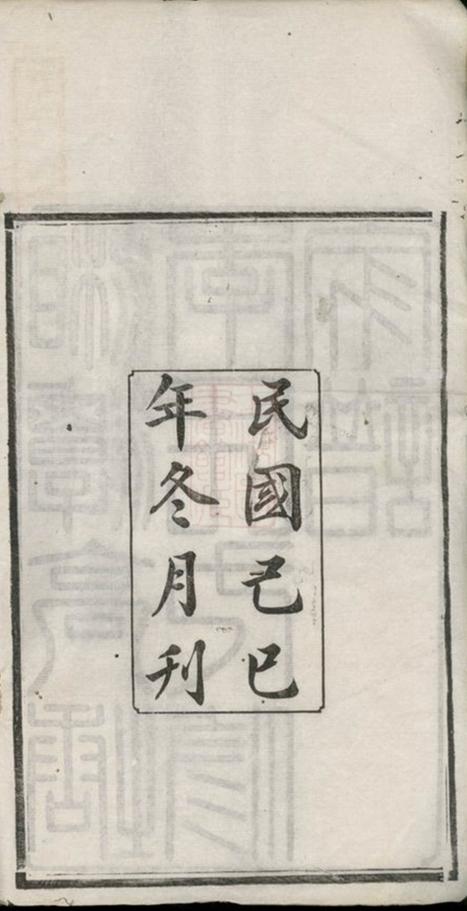 民國己巳
年冬月刊